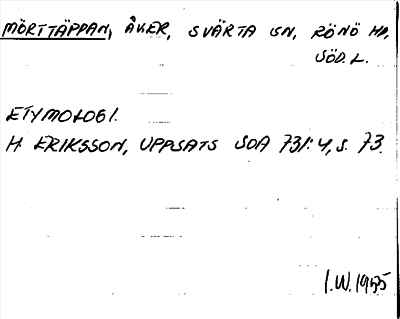 MÖRTTÄPPAN, ÅKER, SVÄRTA SN, RÖNÖ HD,
SÖD. L.
ETYMOLOGI.
H. ERIKSSON, UPPSATS SOA 731:4, S. 73.
I.W. 1955